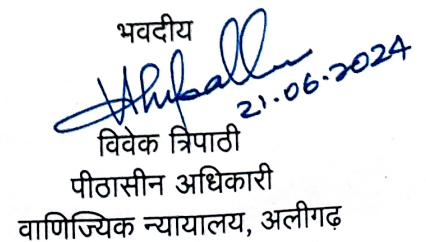 भवदीय
21.06.2024
विवेक त्रिपाठी
पीठासीन अधिकारी
वाणिज्यिक न्यायालय, अलीगढ़